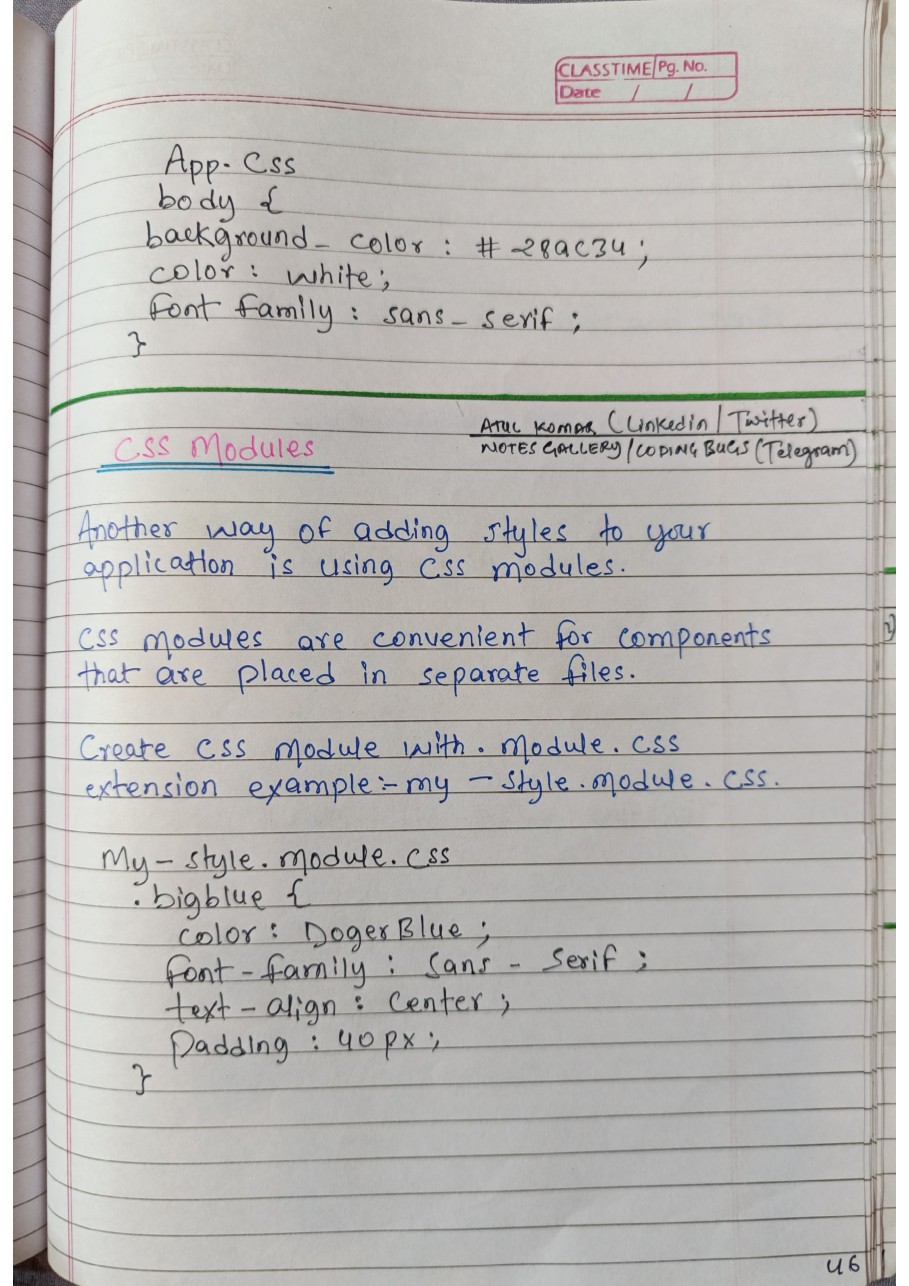 CLASSTIME Pg. No.
Date / /
App. Css
body {
background - color : # 282c34 ;
color : white ;
font family : sans - serif ;
}
ATUL KUMAR (Linkedin / Twitter)
NOTES GALLERY / CODING BUGS (Telegram)
CSS Modules
Another way of adding styles to your
application is using Css modules.
CSS modules are convenient for components
that are placed in separate files.
Create CSS module with . module . CSS
extension example :- my - style . module . CSS.
My - style . module . Css
. bigblue {
color : DogerBlue ;
font - family : Sans - Serif ;
text - align : Center ;
Padding : 40 px ;
}
46